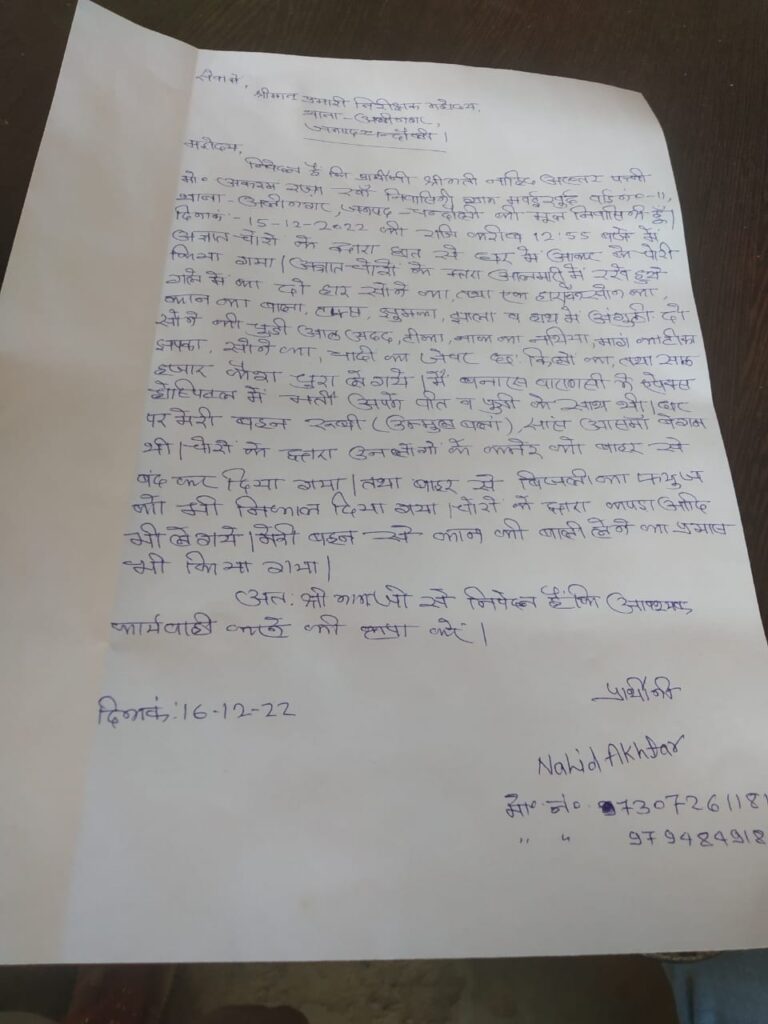 सेवा में,
श्रीमान प्रभारी निरीक्षक महोदय,
थाना - अलीनगर,
जनपद चन्दौली।
महोदय,
निवेदन है कि प्रार्थीनी श्रीमती नाहिद अख्तर पत्नी
मो० अकरम रजा खाँ निवासिनी ग्राम वार्ड नं०-11,
थाना - अलीनगर, जनपद - चन्दौली की मूल निवासिनी हूँ।
दिनांक - 15-12-2022 की रात्रि करीब 12:55 बजे में
अज्ञात चोरों के द्वारा छत से घर में आकर के चोरी
किया गया। अज्ञात चोरों के द्वारा आलमारी में रखे हुये
गले में का दो हार सोने का, तथा एक सोने का,
कान का बाला, टप्स, झुमका, झाला व हाथ में अंगुठी दो
सोने की चुडी आठ अदद, टीका, नाक का नथिया, मांग का टीका
झपका, सोने का, चादी का जेवर छः किलो का, तथा साठ
हजार कैश चुरा ले गये। मैं बनारस वाराणसी के
होस्पिटल में भर्ती अपने पति व के साथ थी। घर
पर मेरी बहन रूबी (उन्मुख बानो), सास आसमा बेगम
थी। चोरों के द्वारा उन लोगों के कमरे को बाहर से
बंद कर दिया गया। तथा बाहर से बिजली का फ्युज
को भी निकाल दिया गया। चोरों के द्वारा कपडा आदि
भी ले गये। मेरी बहन से कान की बाली लेने का प्रयास
भी किया गया।
अतः श्रीमान जी से निवेदन है कि आवश्यक
कार्यवाही करने की कृपा करें।
प्रार्थीनी
दिनांक: 16-12-22
Nahid Akhtar
मो० नं० 97307261181
" " 979484918